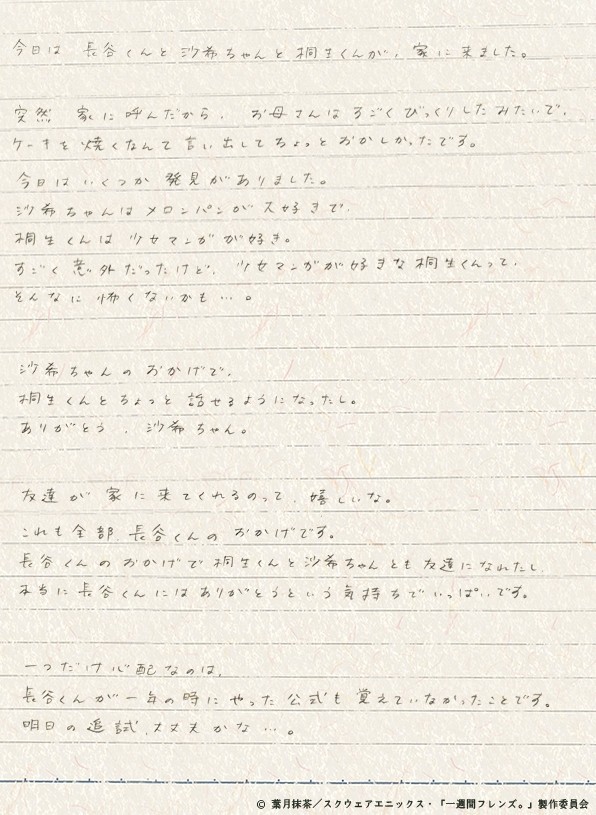 今日は 長谷くんと沙希ちゃんと桐生くんが、家に来ました。
突然 家に呼んだから、お母さんはすごくびっくりしたみたいで、
ケーキを焼くなんて言い出してちょっとおかしかったです。
今日はいくつか発見がありました。
沙希ちゃんはメロンパンが大好きで、
桐生くんは少女マンガが好き。
すごく意外だったけど、少女マンガが好きな桐生くんって、
そんなに怖くないかも…。
沙希ちゃんのおかげで、
桐生くんとちょっと話せるようになったし。
ありがとう、沙希ちゃん。
友達が家に来てくれるのって、嬉しいな。
これも全部、長谷くんのおかげです。
長谷くんのおかげで桐生くんと沙希ちゃんとも友達になれたし、
本当に長谷くんにはありがとうという気持ちでいっぱいです。
一つだけ心配なのは、
長谷くんが一年の時にやった公式も覚えていなかったことです。
明日の追試、大丈夫かな…。
© 葉月抹茶／スクウェアエニックス・「一週間フレンズ。」製作委員会